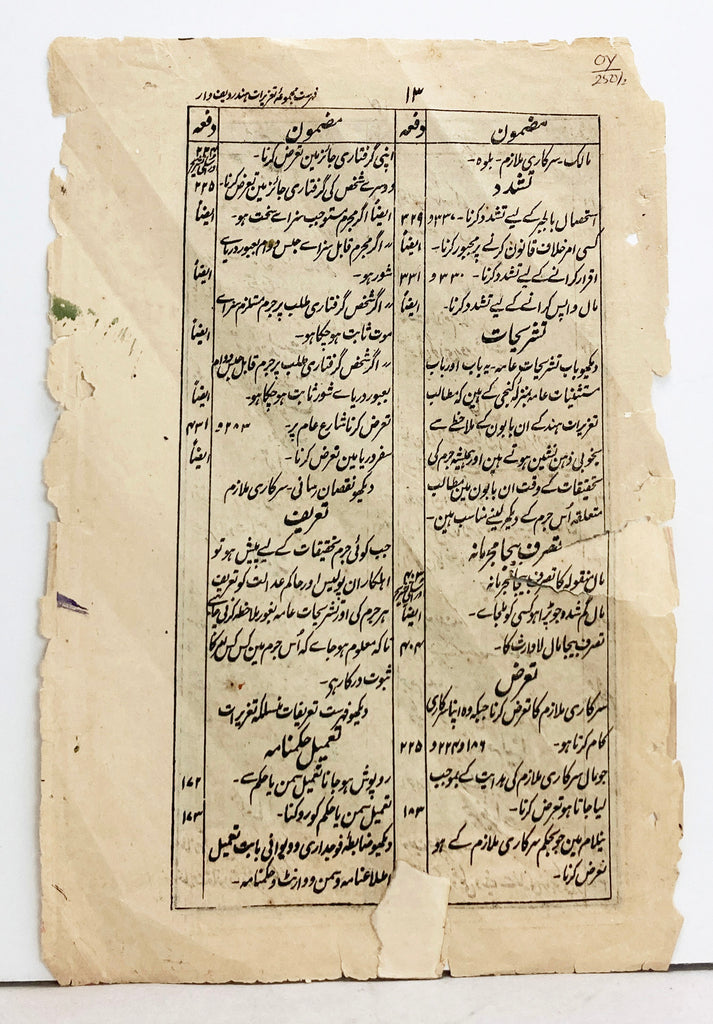 OY
250/-
فہرست مجموعہ تعزیرات ہند ردیف وار
۱۳
مضمون
دفعہ
مالک - سرکاری ملازم - بلوہ -
تشدد
استحصال بالجبر کے لیے تشدد کرنا - ۳۲۷ و ۳۲۹
کسی امر خلاف قانون کرنے پر مجبور کرنا - ایضاً
اقرار کرانے کے لیے تشدد کرنا - ۳۳۰ و ۳۳۱
مال واپس کرانے کے لیے تشدد کرنا - ایضاً
تشریحات
دیکھو باب تشریحات عامہ - یہ باب اور باب
مستثنیات عامہ بمنزلہ کنجی کے ہین کہ مطالب
تعزیرات ہند کے ان بابون کے ملاحظے سے
بخوبی ذہن نشین ہوتے ہین اور ہمیشہ جرم کی
تحقیقات کے وقت ان بابون مین مطالب
متعلقہ اُس جرم کے دیکھ لینے مناسب ہین -
تصرف بیجا مجرمانہ
مال منقولہ کا تصرف بیجا مجرمانہ ۴۰۳
مال گم شدہ جو پڑا ہو کسی کو ملجاے - ایضاً
تصرف بیجا مال لاوارث کا - ۴۰۴
تعرض
سرکاری ملازم کا تعرض کرنا جبکہ وہ اپنا سرکاری
کام کرتا ہو - ۱۸۶ و ۲۲۴ و ۲۲۵
جو مال سرکاری ملازم کی ہدایت کے بموجب
لیا جاتا ہو تعرض کرنا - ۱۸۳
نیلام مین جو بحکم سرکاری ملازم کے ہو
تعرض کرنا -
مضمون
دفعہ
اپنی گرفتاری جائز مین تعرض کرنا - ۲۲۴
دوسرے شخص کی گرفتاری جائز مین تعرض کرنا - ۲۲۵
ایضاً اگر مجرم مستوجب سزاے سخت ہو - ایضاً
〃 اگر مجرم قابل سزاے حبس دوام بعبور دریاے
شور ہو - ایضاً
〃 اگر شخص گرفتاری طلب پر جرم مستلزم سزاے
موت ثابت ہو چکا ہو - ایضاً
〃 اگر شخص گرفتاری طلب پر جرم قابل حبس دوام
بعبور دریاے شور ثابت ہو چکا ہو - ایضاً
تعرض کرنا شارع عام پر - ۲۸۳ و ۴۳۱
سفر دریا مین تعرض کرنا - ایضاً
دیکھو نقصان رسانی - سرکاری ملازم
تعریف
جب کوئی جرم تحقیقات کے لیے پیش ہو تو
اہلکاران پولیس اور حاکم عدالت کو تعریف
ہر جرم کی اور تشریحات عامہ بغور ملاحظہ کرنی چاہیے
تاکہ معلوم ہو جاے کہ اُس جرم مین کس کس امر کا
ثبوت درکار ہے -
دیکھو فہرست تعریفات منسلکہ تعزیرات
تعمیل حکمنامہ
روپوش ہو جانا تعمیل سمن یا حکم سے - ۱۷۲
تعمیل سمن یا حکم کو روکنا - ۱۷۳
دیکھو ضابطہ فوجداری و دیوانی بابت تعمیل
اطلاعنامہ و سمن و وارنٹ و حکمنامہ -